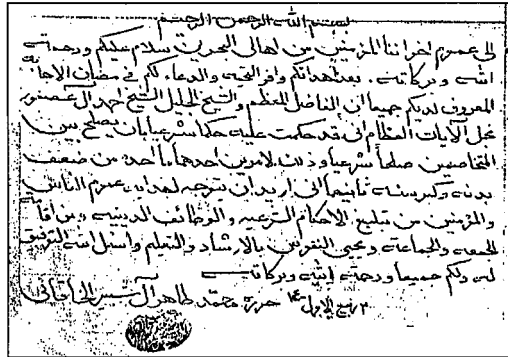 بسم الله الرحمن الرحيم
الى عموم اخواننا المؤمنين من اهالي البحرين سلام عليكم ورحمة
الله وبركاته . بعد اهدائكم وافر التحية والدعاء لكم في مضان الاجابة
المعروف لديكم جميعا ان الفاضل المعظم والشيخ الجليل الشيخ احمد آل عصفور
نجل الآيات العظام اني قد حكمت عليه حكما شرعيا بان يصلح بين
المتخاصمين صلحا شرعيا وذلك لامرين احدهما ما احد من ضعف
بدنه وكبر سنه ثانيهما اني اريد ان يتوجه لهداية عموم الناس
والمؤمنين من تبليغ الاحكام الشرعيه والوظائف الدينيه ومن اقامة
الجمعه والجماعه ويحيي النفوس بالارشاد والتعليم واسئل الله التوفيق
له ولكم جميعا ورحمة الله وبركاته
ربيع الاول حرره محمد طاهر آل شبير الخاقاني